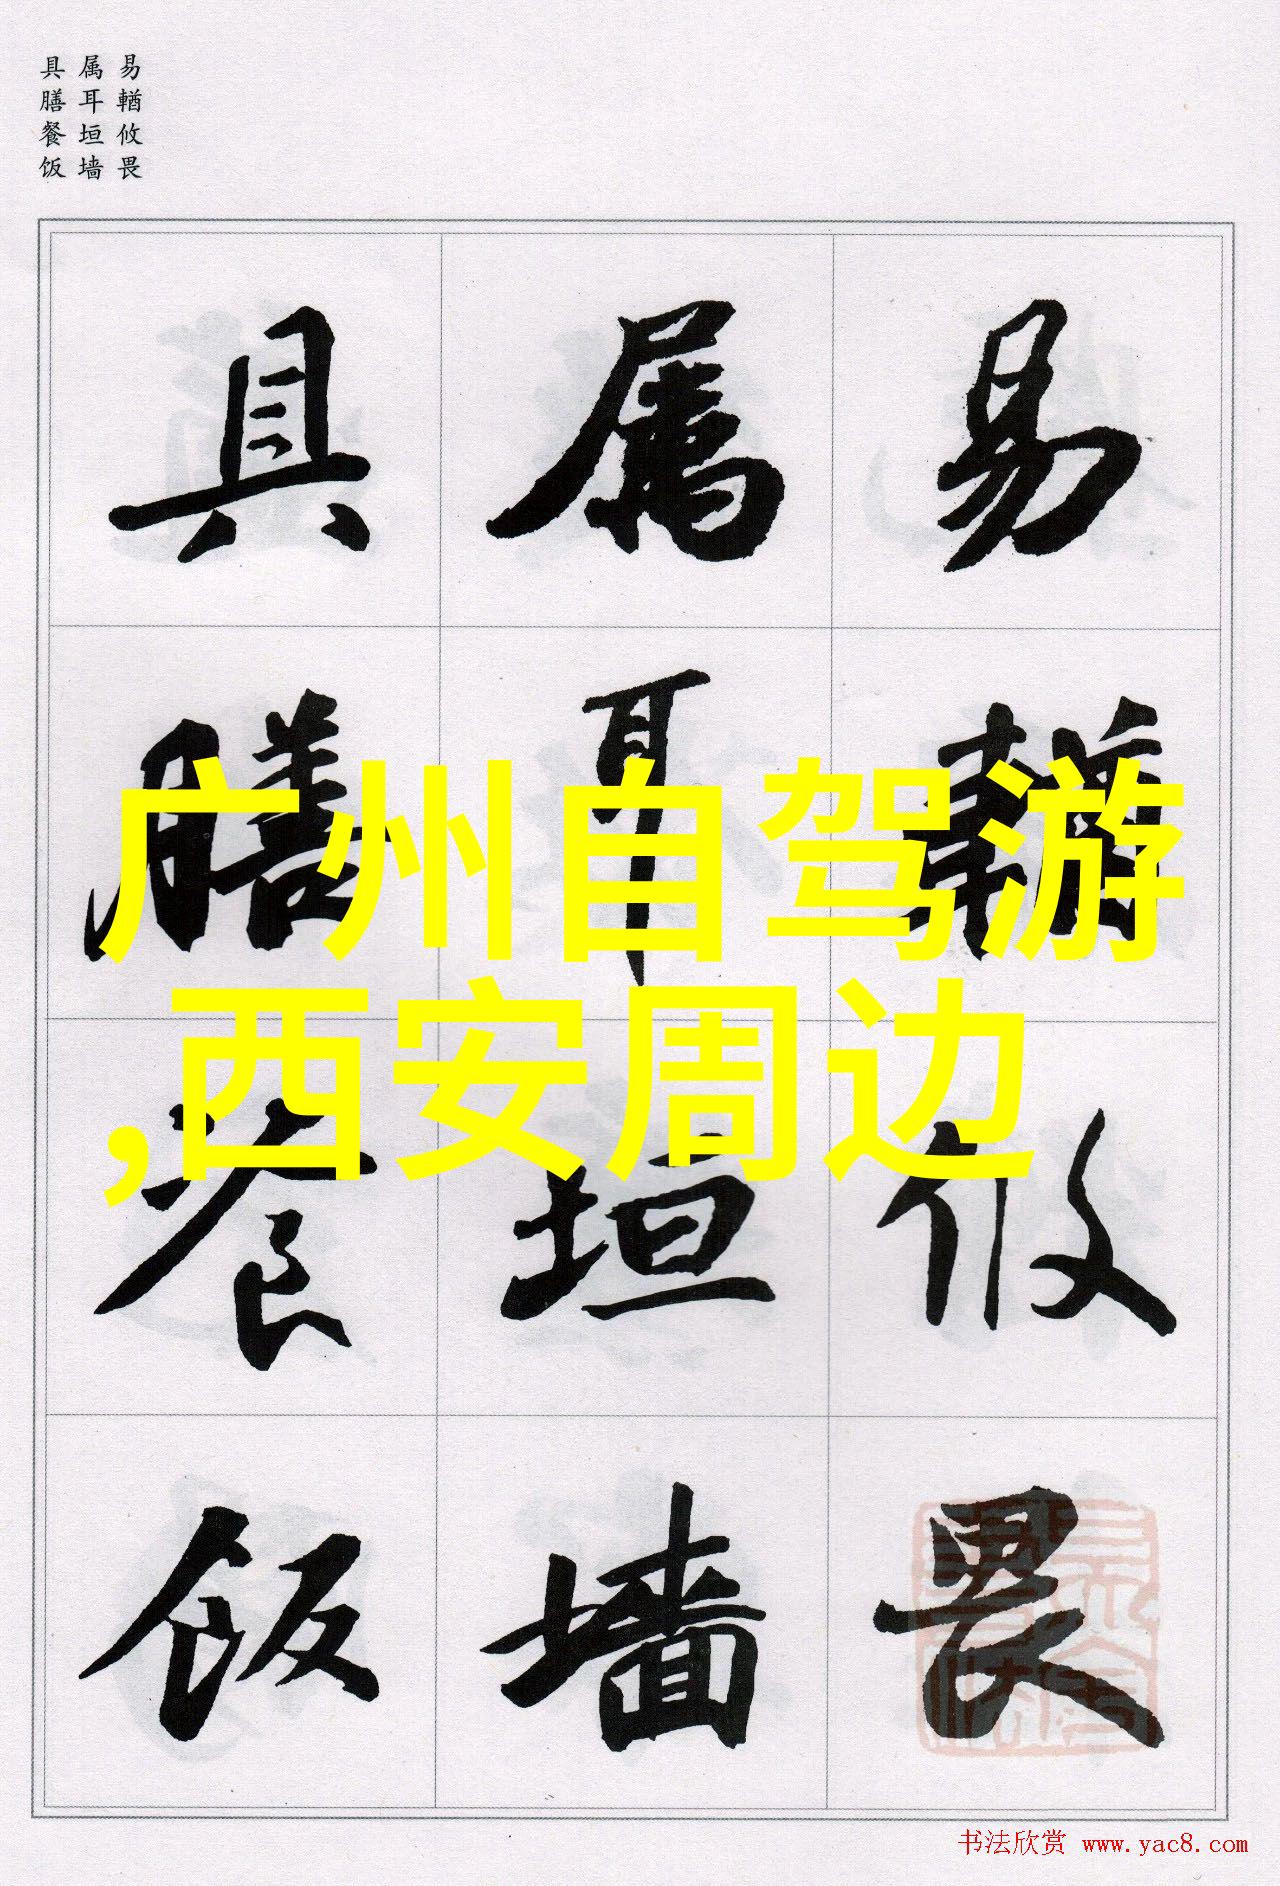 易輶攸畏
属耳垣墙
具膳餐饭
易輶攸畏
属耳垣墙
具膳飡饭
广州自驾游
,西安周边
书法欣赏 www.yac8.com